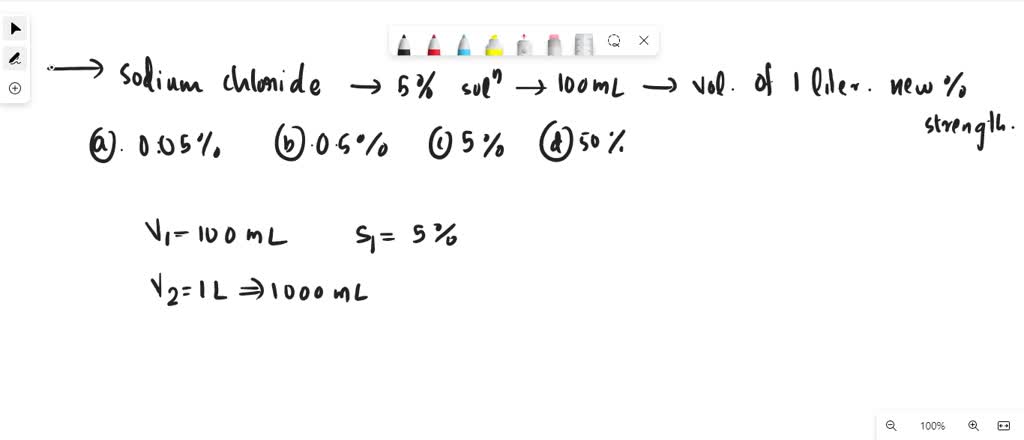 → sodium chloride → 5% solⁿ → 100mL → vol. of 1 liter. new % strength.
(a). 0.05% (b).0.5% (c) 5% (d) 50%
V₁ = 100 mL S₁ = 5%
V₂ = 1L ⇒ 1000 mL
100%